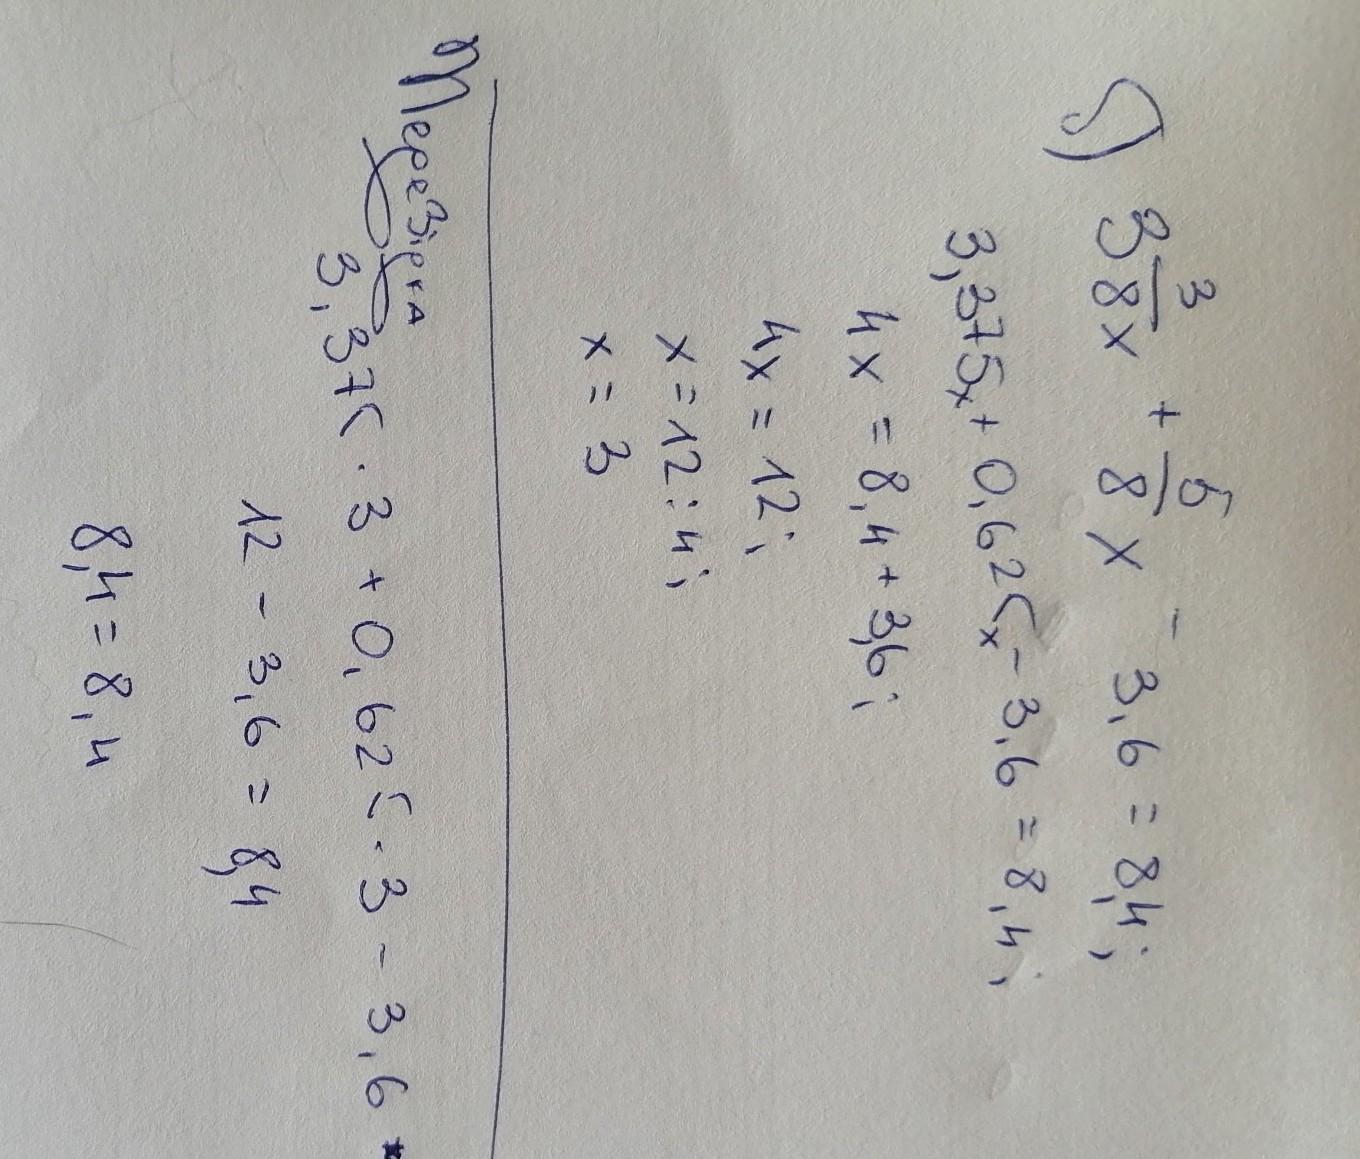 б) 3 3/8 x + 5/8 x - 3,6 = 8,4;
3,375x + 0,625x - 3,6 = 8,4;
4x = 8,4 + 3,6;
4x = 12;
x = 12 : 4;
x = 3
Перевірка
3,375 · 3 + 0,625 · 3 - 3,6
12 - 3,6 = 8,4
8,4 = 8,4